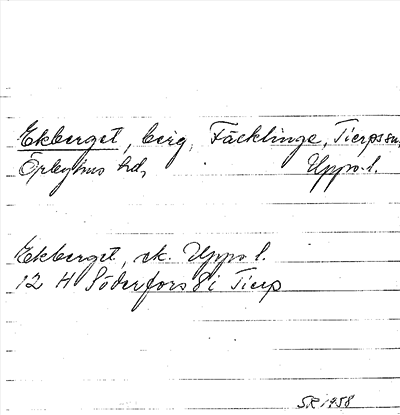 Ekberget, berg, Fäcklinge, Tierps sn,
Örbyhus hd, Uppl.
Ekberget, ek. Uppl.
12 H Söderfors 8 i Tierp
S.R. 1958